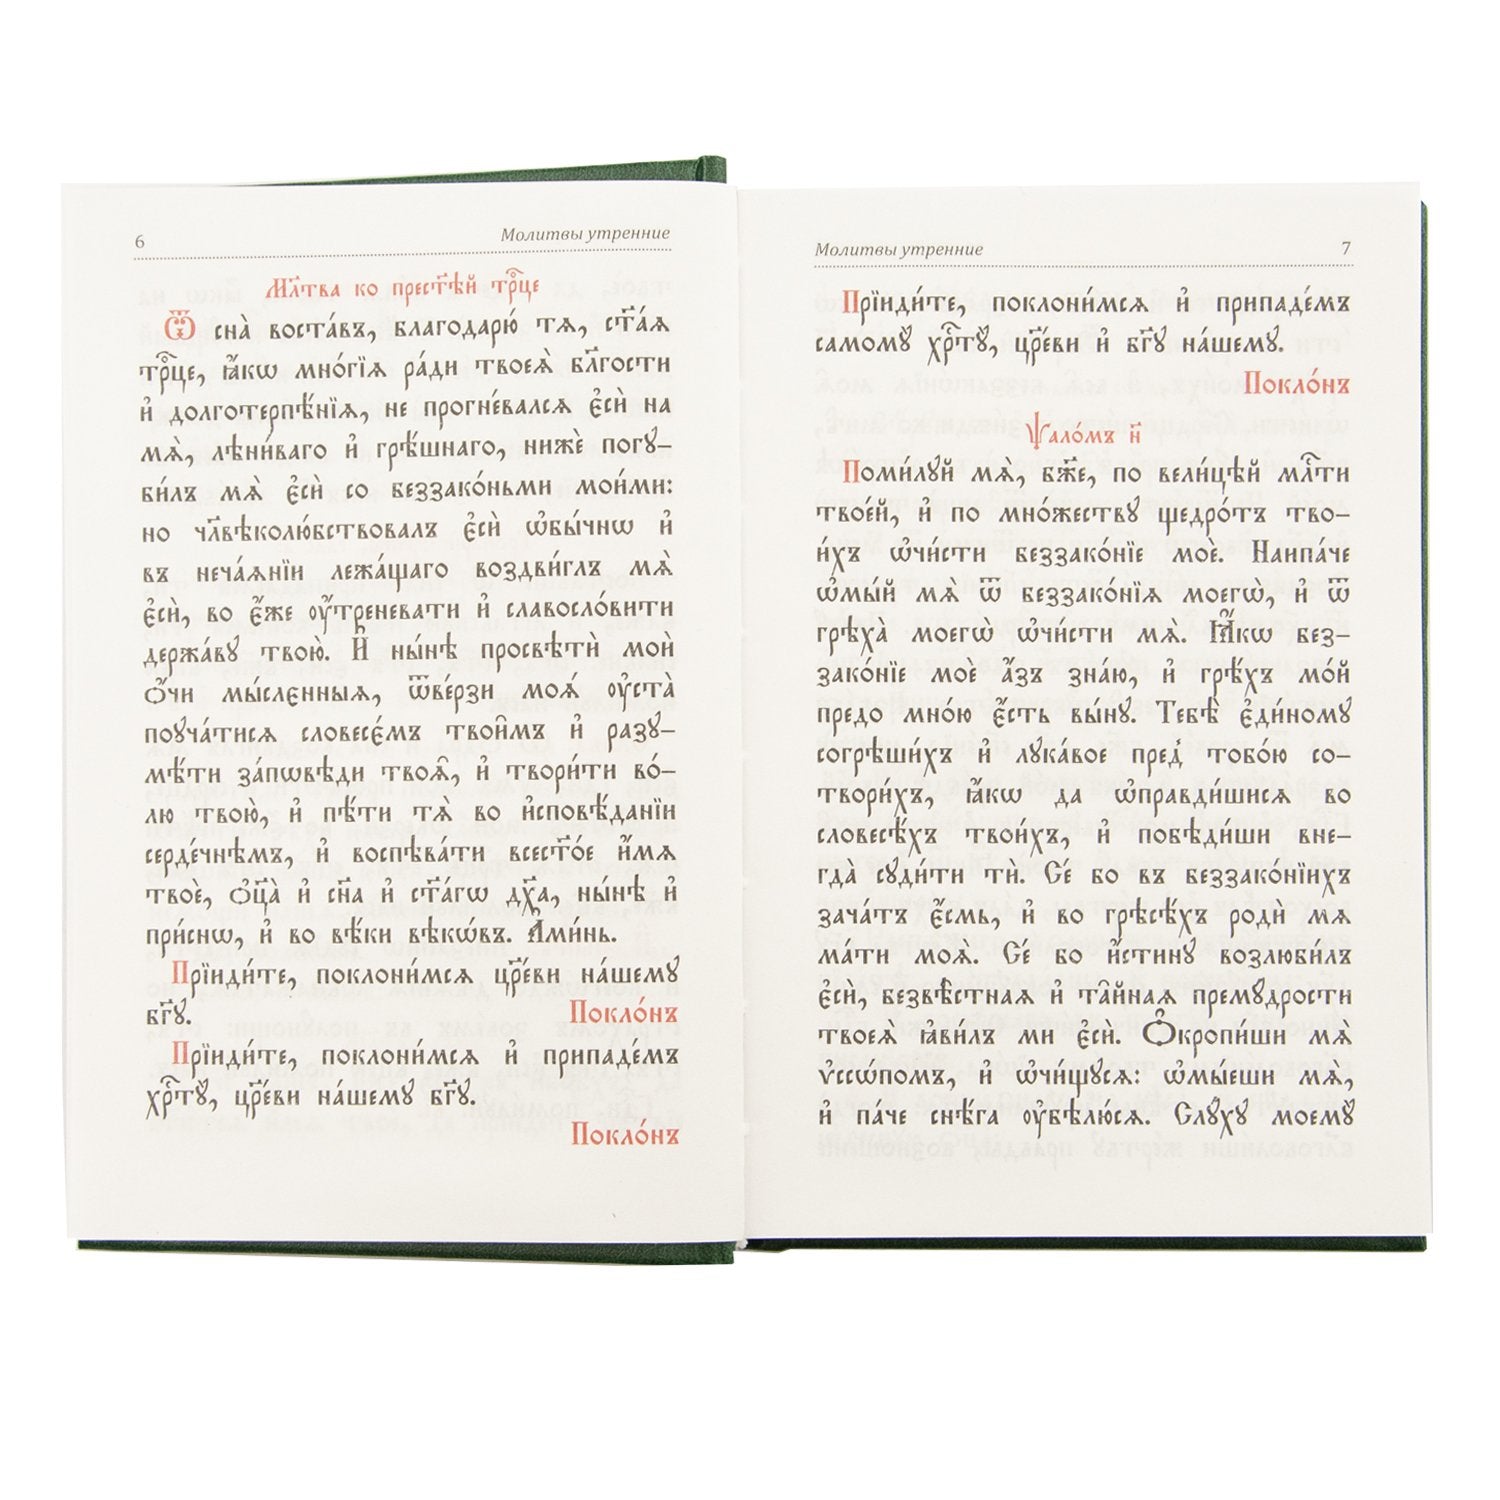 6 Молитвы утренние
Мл҃тва ко прест҃ѣй трⷪ҇цѣ
Ѿ сна̀ воста́въ, благодарю́ тѧ, ст҃а́ѧ
трⷪ҇це, ꙗ҆́кѡ мно́гїѧ ра́ди твоеѧ̀ бл҃гости
и҆ долготерпѣ́нїѧ, не прогнѣ́валсѧ є҆сѝ на
мѧ̀, лѣни́ваго и҆ грѣ́шнаго, нижѐ погꙋ–
би́лъ мѧ̀ є҆сѝ со беззако́ньми мои́ми:
но чл҃вѣколю́бствовалъ є҆сѝ ѡ҆бы́чнѡ и҆
въ неча́ѧнїи лежа́щаго воздви́глъ мѧ̀
є҆сѝ, во є҆́же ᲂу҆́треневати и҆ славосло́вити
держа́вꙋ твою̀. И҆ ны́нѣ просвѣтѝ моѝ
ѻ҆́чи мы́сленныѧ, ѿве́рзи моѧ́ ᲂу҆ста̀
поꙋча́тисѧ словесе́мъ твои̑мъ и҆ разꙋ–
мѣ́ти за́пѡвѣди твоѧ̑, и҆ твори́ти во́–
лю твою̀, и҆ пѣ́ти тѧ̀ во и҆сповѣ́данїи
серде́чнѣмъ, и҆ воспѣва́ти всест҃о́е и҆́мѧ
твоѐ, ѻ҆ц҃а̀ и҆ сн҃а и҆ ст҃а́гѡ дх҃а, ны́нѣ и҆
при́снѡ, и҆ во вѣ́ки вѣкѡ́въ. А҆ми́нь.
Прїиди́те, поклони́мсѧ цр҃е́ви на́шемꙋ
бг҃ꙋ. Покло́нъ
Прїиди́те, поклони́мсѧ и҆ припаде́мъ
хрⷭ҇тꙋ̀, цр҃е́ви на́шемꙋ бг҃ꙋ.
Покло́нъ
Молитвы утренние 7
Прїиди́те, поклони́мсѧ и҆ припаде́мъ
самомꙋ̀ хрⷭ҇тꙋ̀, цр҃е́ви и҆ бг҃ꙋ на́шемꙋ.
Покло́нъ
Ѱало́мъ н҃
Поми́лꙋй мѧ̀, бж҃е, по вели́цѣй мл҃ти
твое́й, и҆ по мно́жествꙋ щедро́тъ тво–
и́хъ ѡ҆чи́сти беззако́нїе моѐ. Наипа́че
ѡ҆мы́й мѧ̀ ѿ беззако́нїѧ моегѡ̀, и҆ ѿ
грѣха̀ моегѡ̀ ѡ҆чи́сти мѧ̀. Ꙗ҆́кѡ без–
зако́нїе моѐ а҆́зъ зна́ю, и҆ грѣ́хъ мо́й
предо мно́ю є҆́сть вы́нꙋ. Тебѣ̀ є҆ди́номꙋ
согрѣши́хъ и҆ лꙋка́вое пред̾ тобо́ю со–
твори́хъ, ꙗ҆́кѡ да ѡ҆правди́шисѧ во
словесѣ́хъ твои́хъ, и҆ побѣди́ши вне–
гда̀ сꙋди́ти тѝ. Се́ бо въ беззако́нїихъ
зача́тъ є҆́смь, и҆ во грѣсѣ́хъ родѝ мѧ
ма́ти моѧ̀. Се́ бо и҆́стинꙋ возлюби́лъ
є҆сѝ, безвѣ́стнаѧ и҆ та̑йнаѧ премꙋ́дрости
твоеѧ̀ ꙗ҆ви́лъ ми є҆сѝ. Ѻ҆кропи́ши мѧ̀
ѵ҆ссѡ́помъ, и҆ ѡ҆чи́щꙋсѧ: ѡ҆мы́еши мѧ̀,
и҆ па́че снѣ́га ᲂу҆бѣлю́сѧ. Слꙋ́хꙋ моемꙋ̀